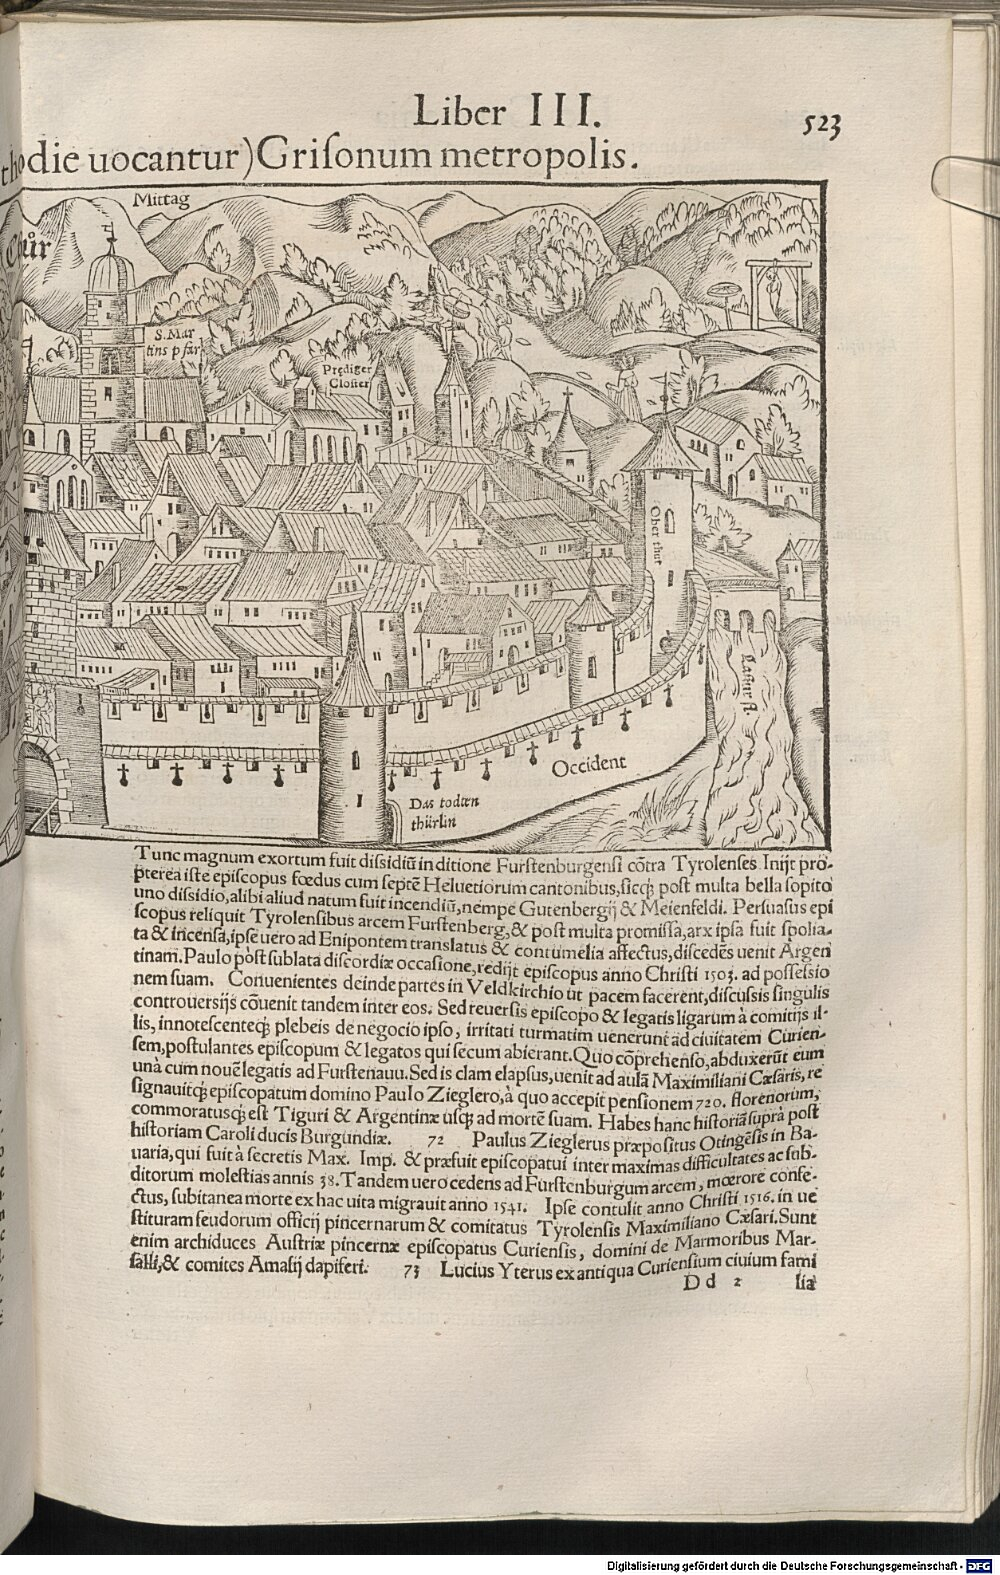 Liber III.
523
hodie uocantur) Grisonum metropolis.
Mittag
Chůr
S. Mar
tins pfar
Prediger
Closter
Ober thur
Occident
Das todten
thürlin
Tunc magnum exortum fuit dissidiũ in ditione Furstenburgensi cõtra Tyrolenses. Inijt pro-
pterea iste episcopus fœdus cum septẽ Heluetiorum cantonibus, sicq; post multa bella sopito
uno dissidio, alibi aliud natum fuit incendiũ, nempe Gutenbergij & Meienfeldi. Persuasus epi
scopus reliquit Tyrolensibus arcem Furstenberg, & post multa promissa, arx ipsa fuit spolia-
ta & incensa, ipse uero ad Enipontem translatus & contumelia affectus, discedẽs uenit Argen
tinam. Paulo pòst sublata discordiæ occasione, redijt episcopus anno Christi 1503. ad possessio
nem suam. Conuenientes deinde partes in Veldkirchio ut pacem facerent, discussis singulis
controuersijs cõuenit tandem inter eos. Sed reuersis episcopo & legatis ligarum à comitijs il-
lis, innotescenteq; plebeis de negocio ipso, irritati turmatim uenerunt ad ciuitatem Curien-
sem, postulantes episcopum & legatos qui secum abierant. Quo cõprehenso, abduxerũt eum
unà cum nouẽ legatis ad Furstenauu. Sed is clam elapsus, uenit ad aulã Maximiliani Cæsaris, re
signauitq; episcopatum domino Paulo Zieglero, à quo accepit pensionem 720. florenorum,
commoratusq; est Tiguri & Argentinæ usq; ad mortẽ suam. Habes hanc historiã suprà post
historiam Caroli ducis Burgundiæ. 72 Paulus Zieglerus præpositus Otingẽsis in Ba-
uaria, qui fuit à secretis Max. Imp. & præfuit episcopatui inter maximas difficultates ac sub-
ditorum molestias annis 38. Tandem uero cedens ad Furstenburgum arcem, mœrore confe-
ctus, subitanea morte ex hac uita migrauit anno 1541. Ipse contulit anno Christi 1516. in ue
stituram feudorum officij pincernarum & comitatus Tyrolensis Maximiliano Cæsari. Sunt
enim archiduces Austriæ pincernæ episcopatus Curiensis, domini de Marmoribus Mar-
salli, & comites Amasij dapiferi. 73 Lucius Yterus ex antiqua Curiensium ciuium fami
Dd 2 lia
Digitalisierung gefördert durch die Deutsche Forschungsgemeinschaft - DFG